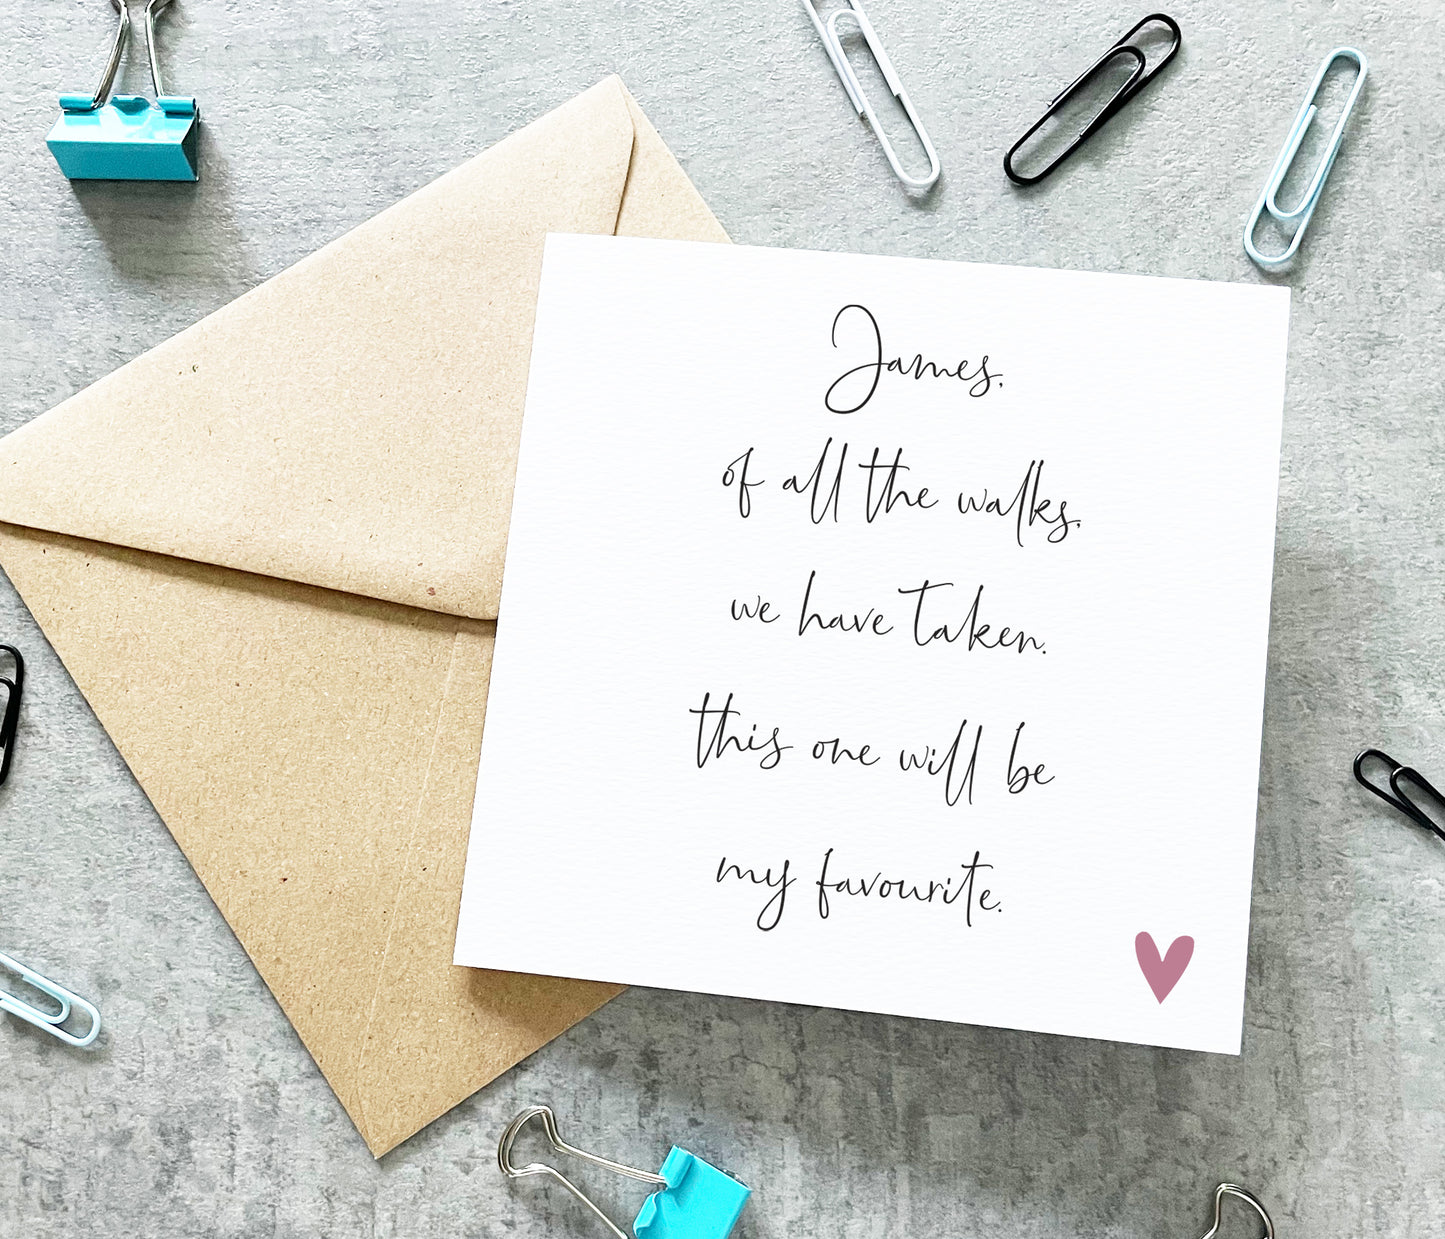 James,
of all the walks,
we have taken.
this one will be
my favourite.